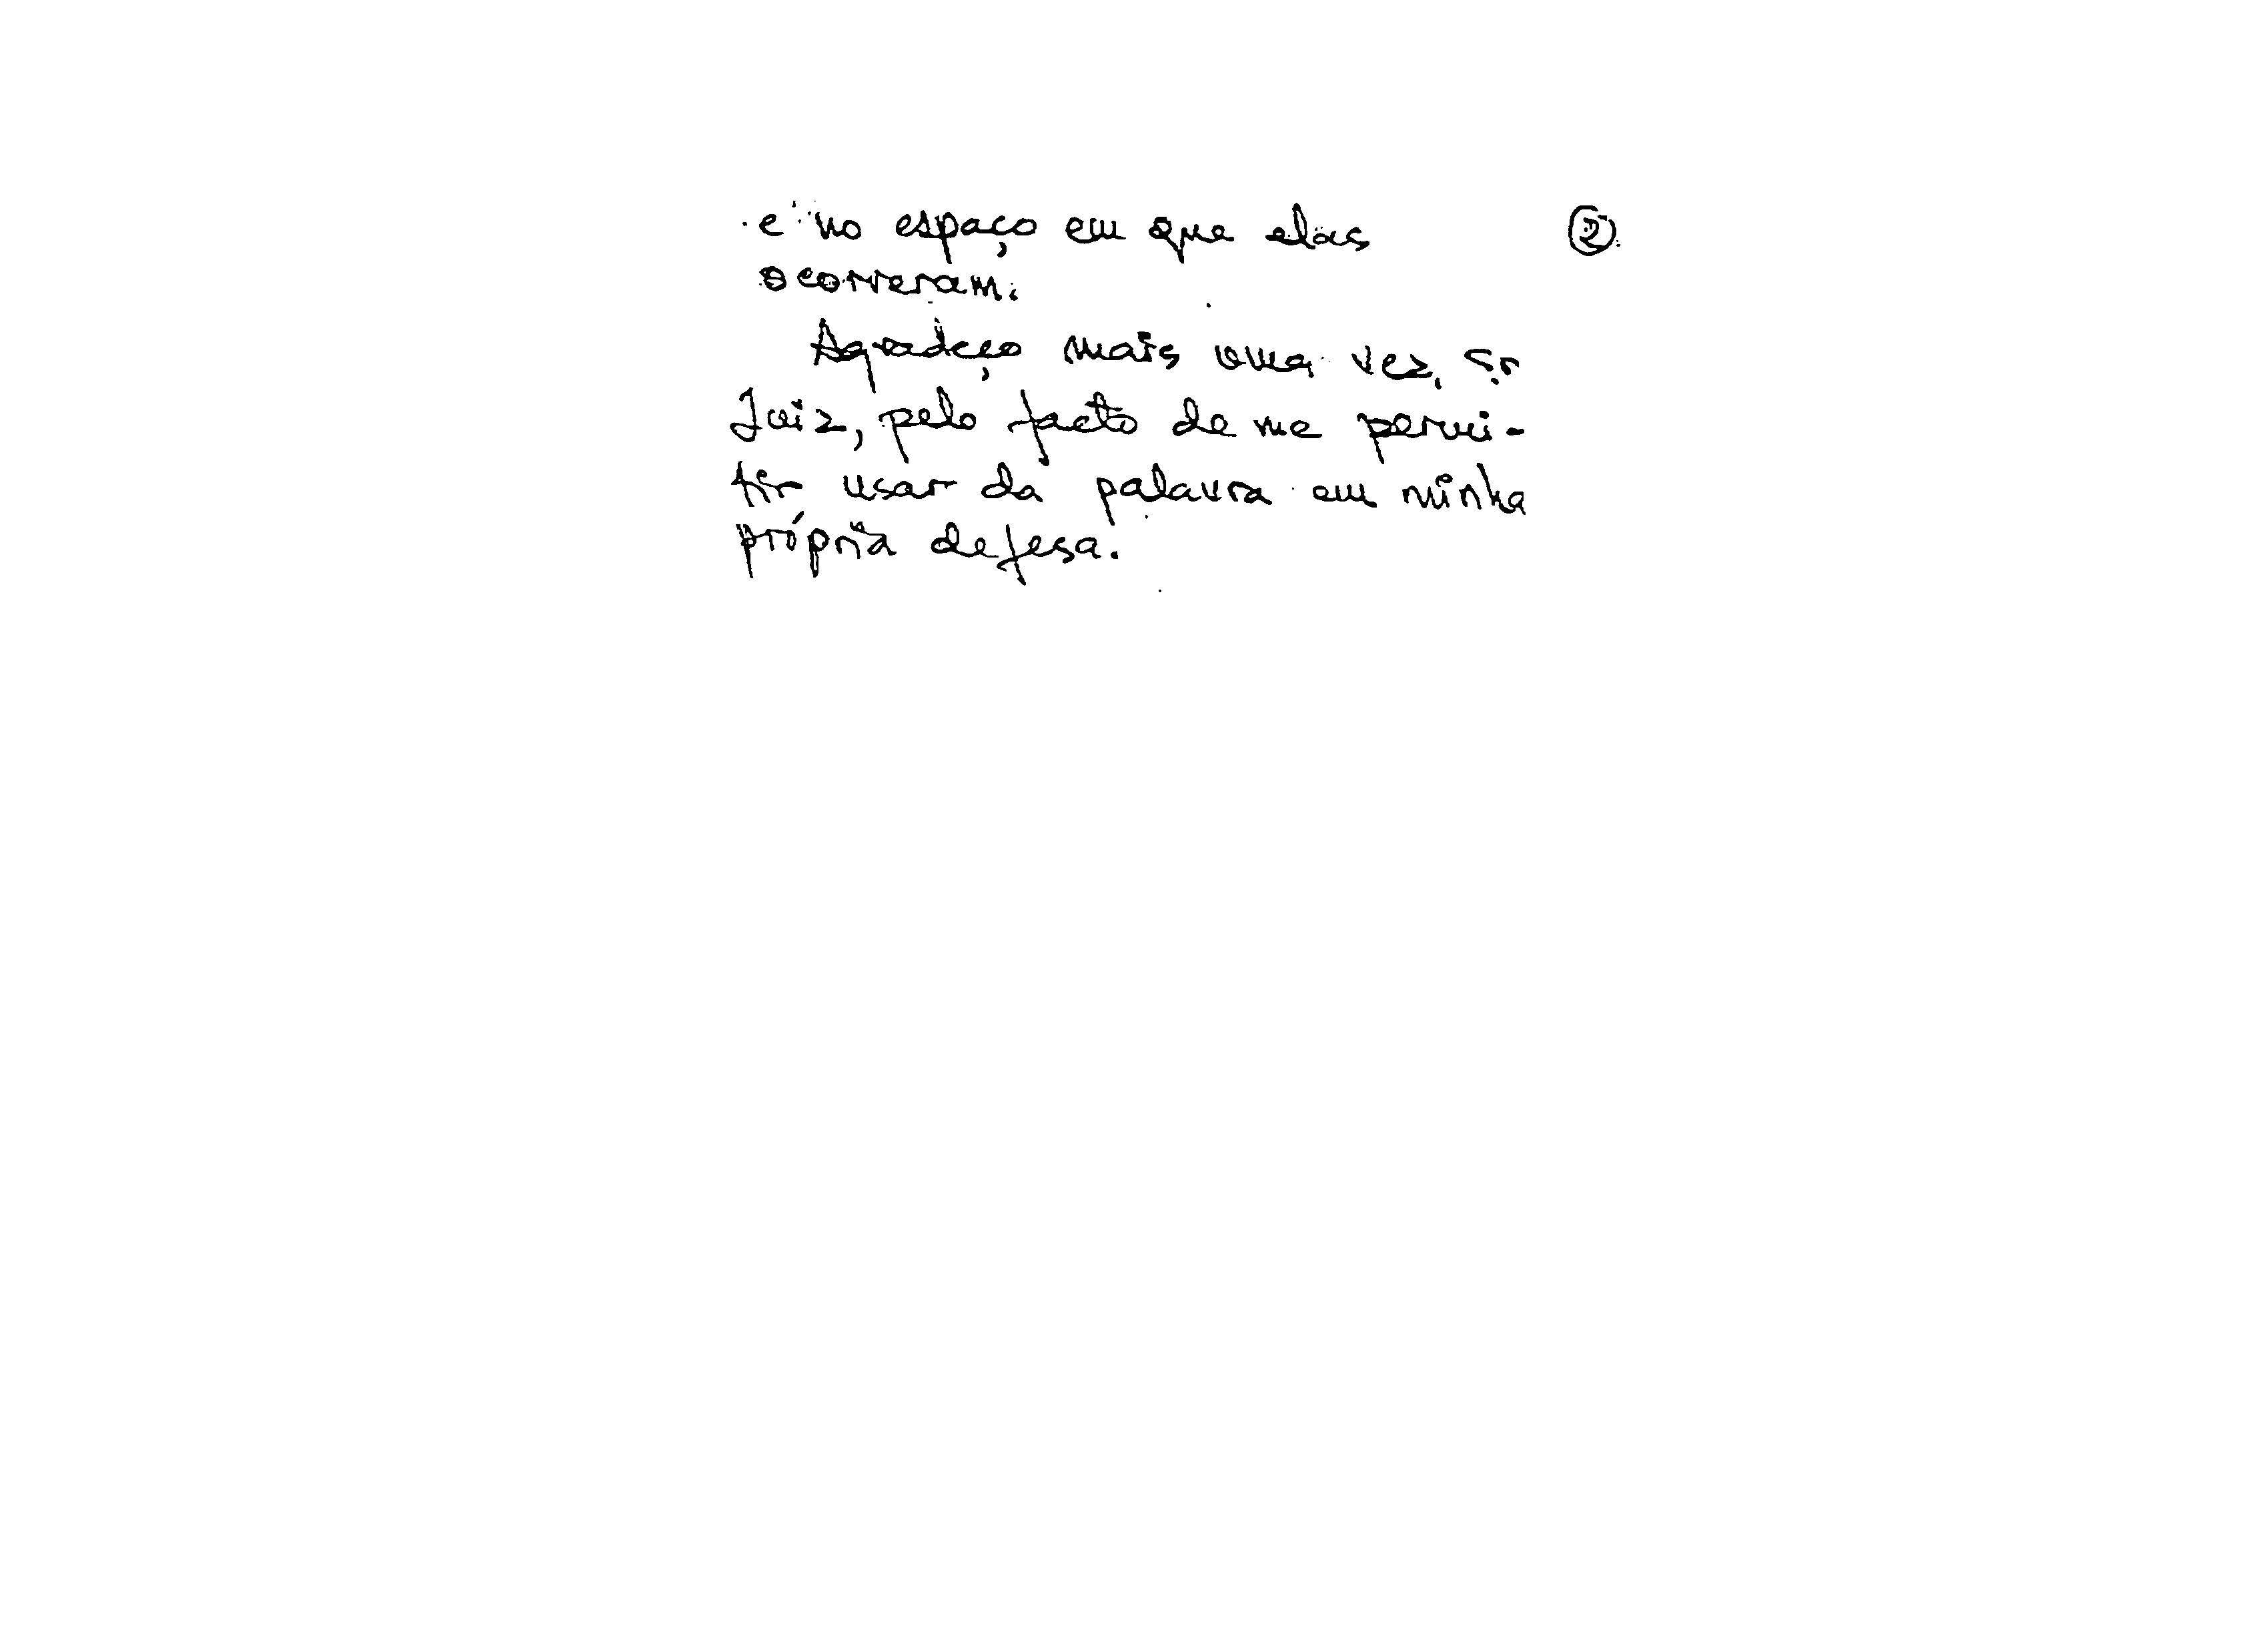 e no espaço em que elas ②
ocorreram.
Agradeço mais uma vez, Sr
Juiz, pelo facto de me permi-
tir usar da palavra em minha
própria defesa.